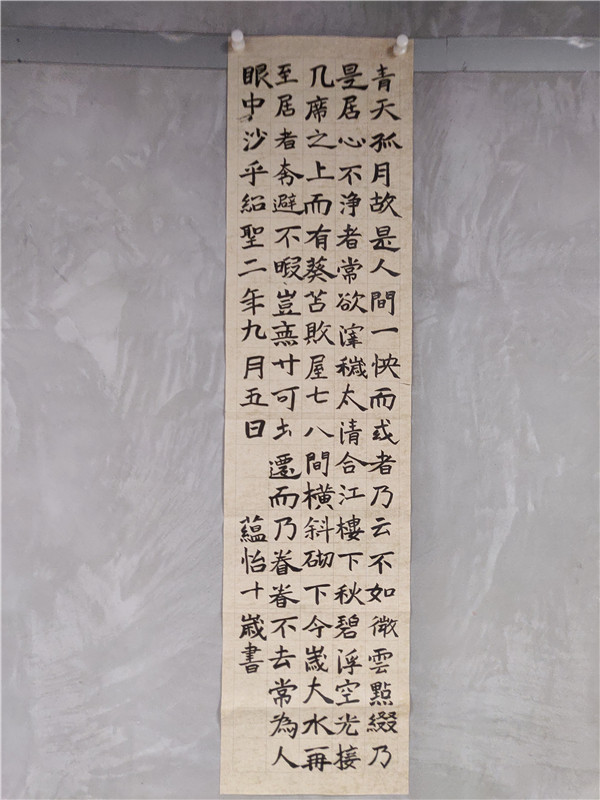 青天孤月故是人間一怏而或者乃云不如微雲點綴乃
是居心不淨者常欲滓穢太清合江樓下秋碧浮空光接
几席之上而有葵苫敗屋七八間橫斜砌下今歲大水再
至居者奔避不暇豈無寸可土遷而乃眷眷不去常為人
眼中沙乎紹聖二年九月五日 蘊怡十歲書